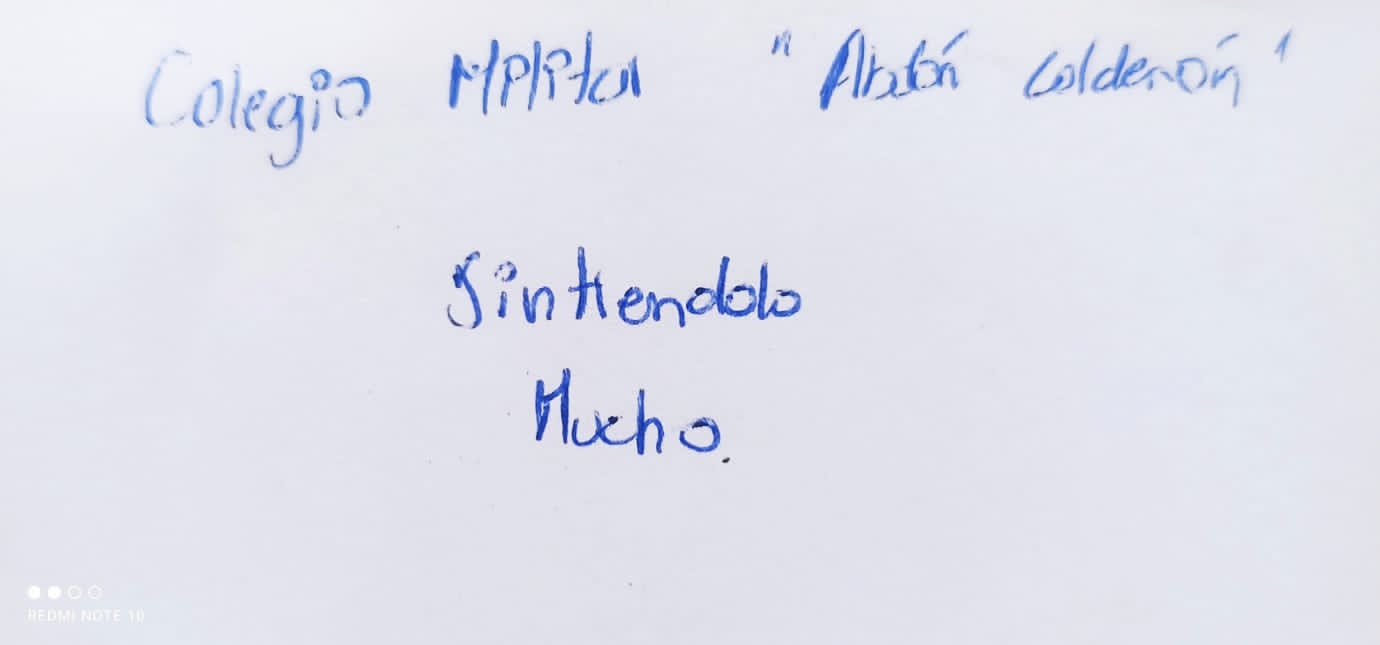 Colegio Militar "Abdón Calderón"
Sintiendolo
Mucho.
REDMI NOTE 10